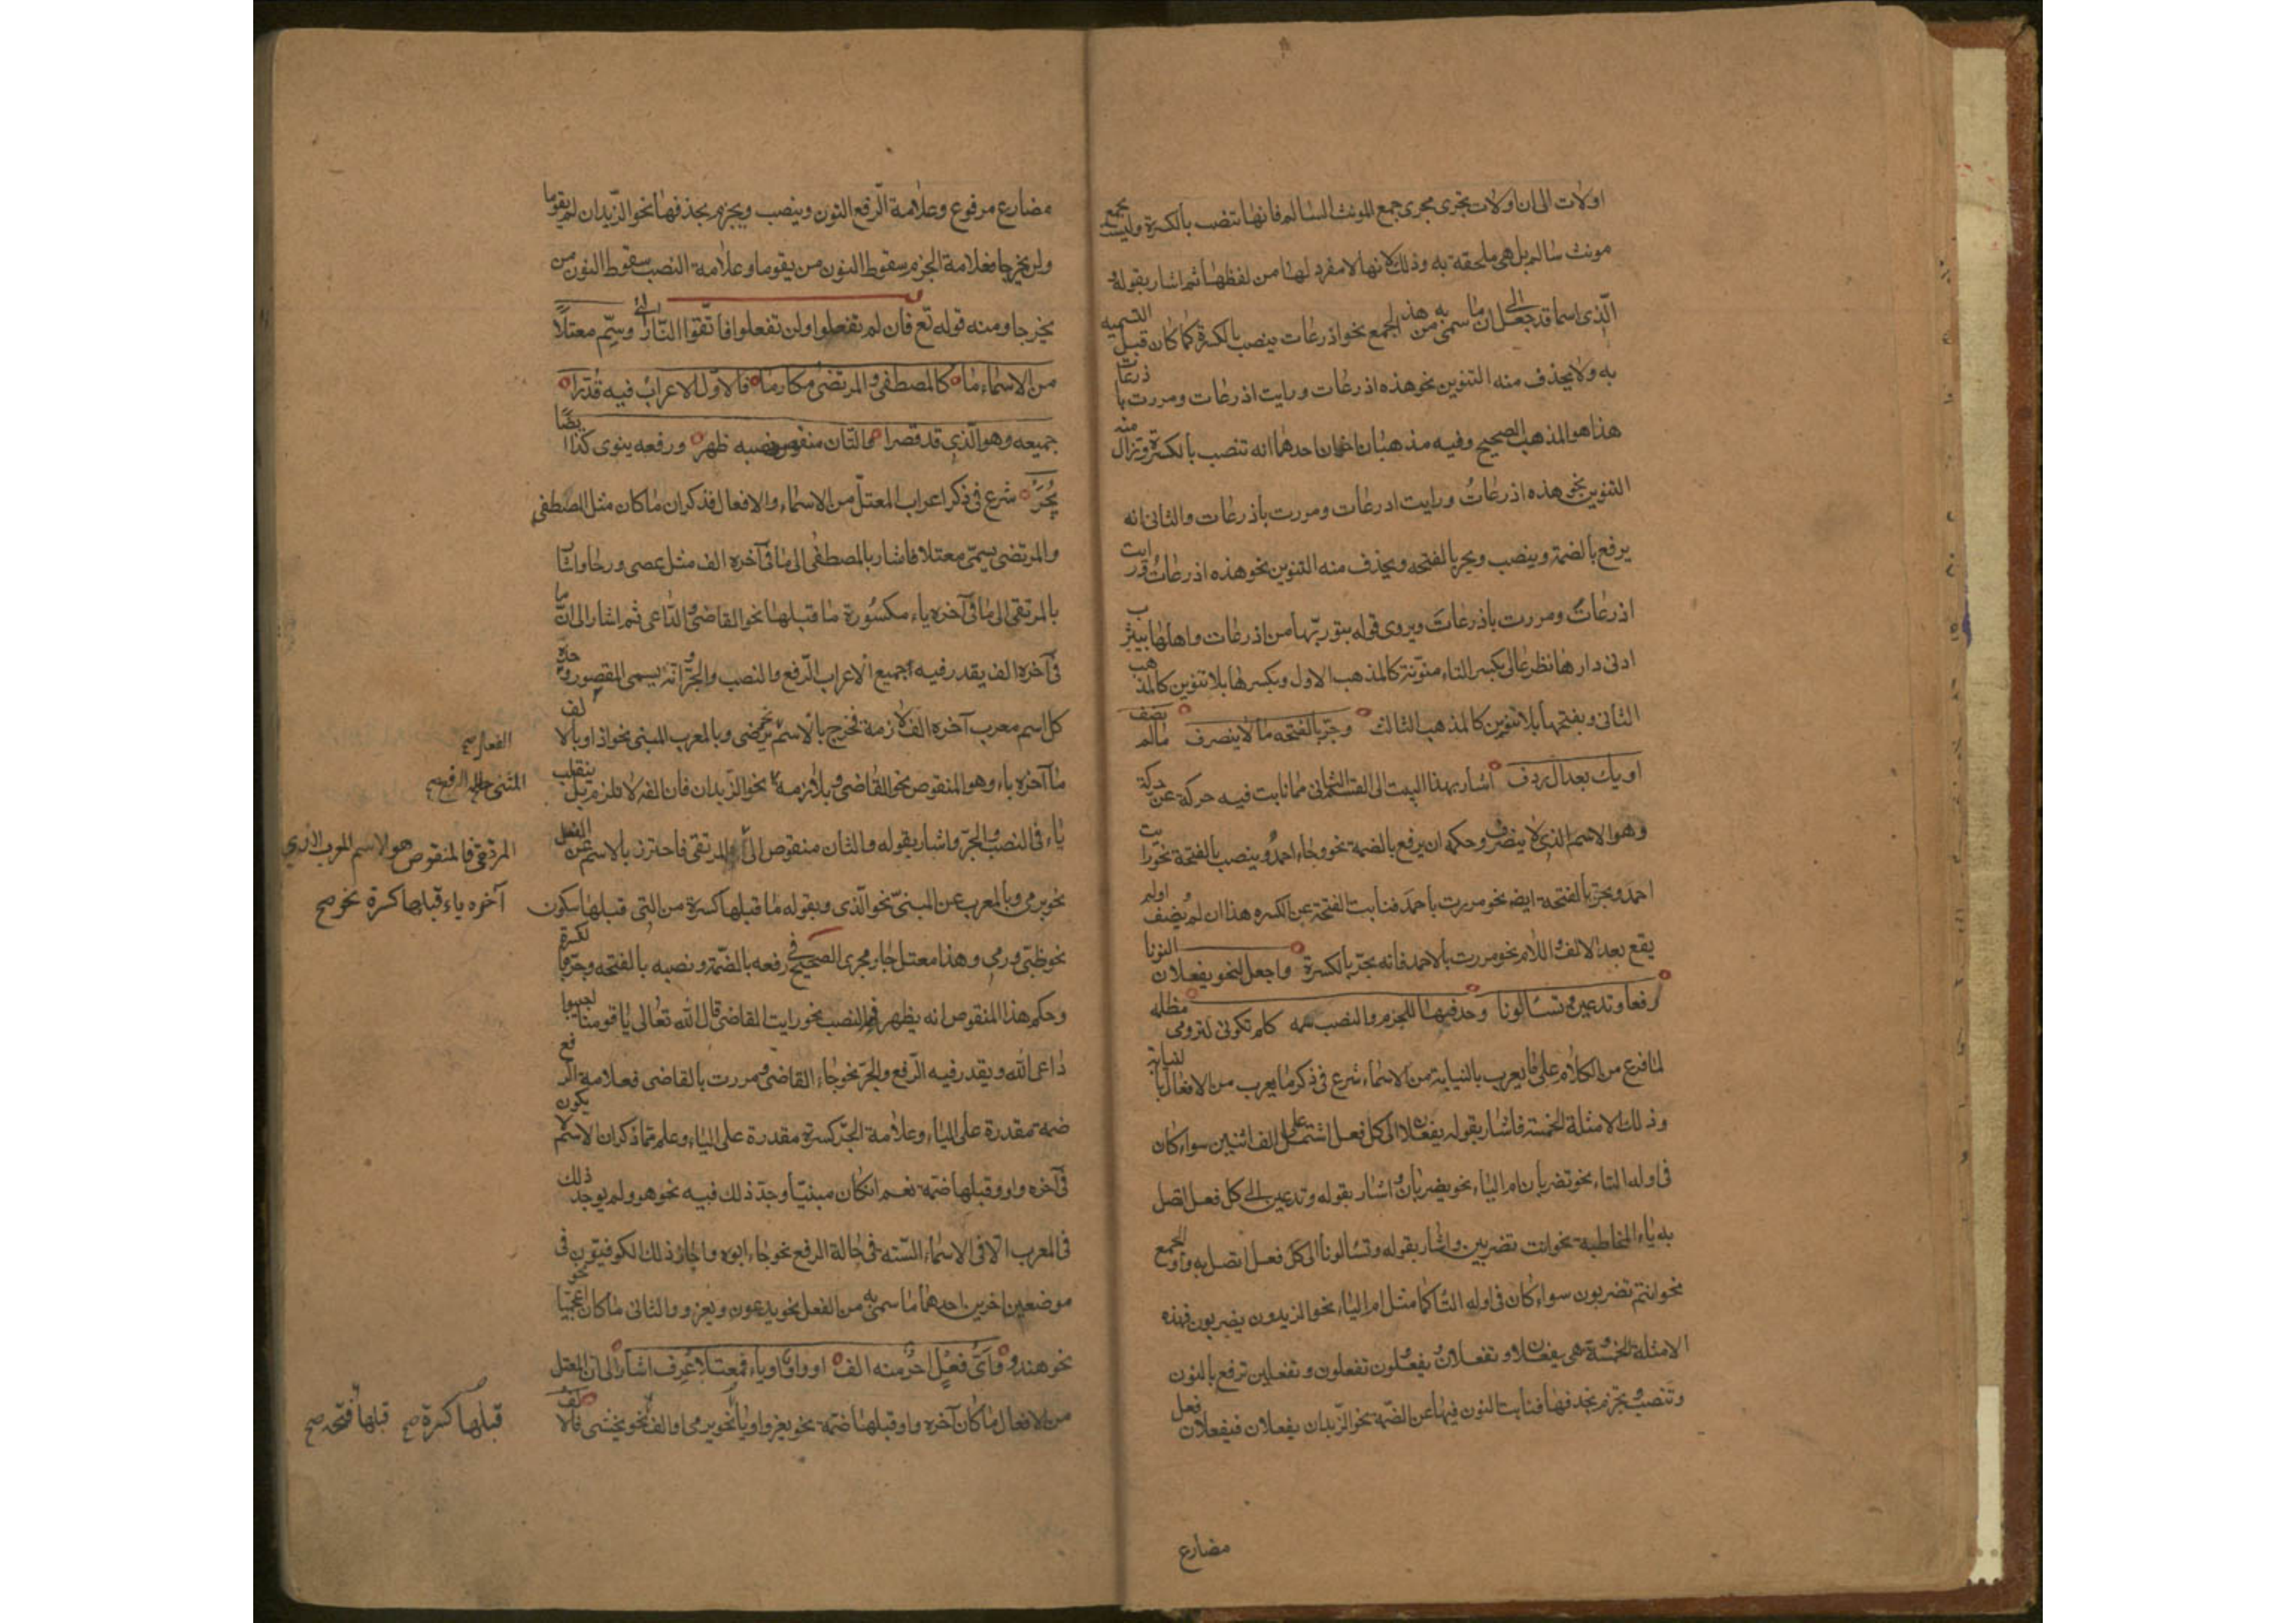 اولات الى ان اولات تجرى مجرى جمع المونث السالم فانها تنصب بالكسرة وليست بجمع
مونث سالم بل هى ملحقة به وذلك لانها لا مفرد لها من لفظها ثم اشار بقوله و
الّذى اسما قد جعل الى ان ما سمى به من هذا الجمع نحو اذرعات ينصب بالكسرة كما كان قبل التسميه
به ولا يحذف منه التنوين نحو هذه اذرعات ورايت اذرعات ومررت باذرعات
هذا هو المذهب الصحيح وفيه مذهبان اخران احدهما انه تنصب بالكسرة وتزال منه
التنوين نحو هذه اذرعاتُ ورايت اذرعات ومررت باذرعات والثانى انه
يرفع بالضمة وينصب ويجر بالفتحه ويحذف منه التنوين نحو هذه اذرعاتُ ورايت
اذرعاتَ ومررت باذرعاتَ ويروى قوله تنورتها من اذرعات واهلها بيثرب
ادنى دارها نظر عالى بكسر التاء منوّنة كالمذهب الاول وبكسرها بلا تنوين كالمذهب
الثانى وبفتحها بلا تنوين كالمذهب الثالث وجرّ بالفتحه ما لا ينصرف مالم يضف
او يك بعد ال ردف اشار بهذا البيت الى القسم الثانى مما نابت فيه حركة عن حركة
وهو الاسم الذى لا ينصرف وحكمه ان يرفع بالضمة نحو جاء احمدُ وينصب بالفتحة نحو رايت
احمد ويجرّ بالفتحة ايضا نحو مررت باحمدَ فنابت الفتحة عن الكسره هذا ان لم يُضف اولم
يقع بعد الالف واللام نحو مررت بالاحمد فانه يجرّ بالكسرة واجعل لنحو يفعلان النونا
رفعا وتدعين وتسالونا وحذفها للجزم والنصب سمه كلم تكونى لترومى مظلمه
لما فرغ من الكلام على ما يعرب بالنيابة من الاسماء شرع فى ذكر ما يعرب من الافعال بالنيابة
وذلك الامثلة الخمسة فاشار بقوله يفعلان الى كل فعل اشتمل على الف اثنين سواء كان
فى اوله التاء نحو تضربان ام الياء نحو يضربان واشار بقوله وتدعين الى كل فعل اتصل
به ياء المخاطبة نحو انت تضربين واشار بقوله وتسالونا الى كل فعل اتصل به واو الجمع
نحو انتم تضربون سواء كان فى اوله التا كما مثل ام الياء نحو الزيدون يضربون فهذه
الامثلة الخمسة هى يفعلان وتفعلان يفعلون تفعلون وتفعلين ترفع بالنون
وتنصب وتجزم بحذفها فنابت النون فيها عن الضمّة نحو الزّيدان يفعلان فيفعلان فعل
مضارع
مضارع مرفوع وعلامة الرّفع النون وينصب ويجزم بحذفها نحو الزّيدان لم يقوما
ولن يخرجا فعلامة الجزم سقوط النون من يقوما وعلامة النصب سقوط النون من
يخرجا ومنه قوله تع فان لم تفعلوا ولن تفعلوا فاتّقوا النّار التى وسمّ معتلّا
من الاسماء ما كالمصطفى والمرتقى مكارما فالاوّل الاعراب فيه قدّرا
جميعه وهو الّذى قد قصرا والثان منقوص ونصبه ظهر ورفعه ينوى كذا ايضًا
يُجَرّ شرع فى ذكر اعراب المعتلّ من الاسماء والافعال فذكر ان ما كان مثل المصطفى
والمرتضى يسمّى معتلا فاشار بالمصطفى الى ما فى آخره الف مثل عصى ورحا واشار
بالمرتقى الى ما فى آخره ياء مكسورة ما قبلها نحو القاضى والدّاعى ثم اشار الى ان ما
فى آخره الف يقدر فيه جميع الاعراب الرّفع والنصب والجرّ وانّه يسمى المقصور وحدّه
كل اسم معرب آخره الف لازمة فخرج بالاسم نحو يرضى وبالمعرب المبنى نحو اذا وبالالف
ما آخره ياء وهو المنقوص نحو القاضى وبلازمة نحو الزّيدان فان الفه لا تلزم بل ينقلب
المثنى حالة الرفع صح
ياء فى النصب والجرّ واشار بقوله والثان منقوص الى المرتقى فاحترز بالاسم عن الفعل
المرتقى فالمنقوص هو الاسم المعرب الذى
آخره ياء قبلها كسرة نحو صح
نحو يرمى وبالمعرب عن المبنىّ نحو الّذى وبقوله ما قبلها كسرة من التى قبلها سكون
نحو ظبى ورمى وهذا معتل جار مجرى الصحيح فى رفعه بالضمّة ونصبه بالفتحه وجرّه بالكسرة
وحكم هذا المنقوص انه يظهر فيه النصب نحو رايت القاضى قال الله تعالى يا قومنا اجيبوا
داعى الله ويقدر فيه الرّفع والجرّ نحو جاء القاضى ومررت بالقاضى فعلامة الرفع
ضمه مقدرة على الياء وعلامة الجرّ كسرة مقدرة على الياء وعلم مما ذكر ان الاسم لا يكون
فى آخره واو قبلها ضمّة نعم ان كان مبنيّا وجد ذلك فيه نحو هو ولم يوجد ذلك
فى المعرب الا فى الاسماء السّته فى حالة الرفع نحو جاء ابوه واجاز ذلك الكوفيّون فى
موضعين اخرين احدهما ما سمى به من الفعل نحو يدعون ويغزو والثانى ما كان اعجميّا نحو
نحو هندو واىّ فعل اخر منه الف او واو او ياء فمعتلا عرف اشار الى ان المعتل
من الافعال ما كان آخره واو قبلها ضمّة نحو يغزو او ياء نحو يرمى او الف نحو يخشى فالالف
قبلها كسرة صح قبلها فتحه صح